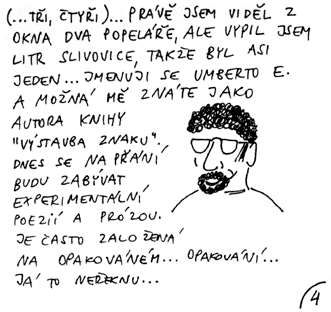 (...TŘI, ČTYŘI)... PRÁVĚ JSEM VIDĚL Z
OKNA DVA POPELÁŘE, ALE VYPIL JSEM
LITR SLIVOVICE, TAKŽE BYL ASI
JEDEN... JMENUJI SE UMBERTO E.
A MOŽNÁ MĚ ZNÁTE JAKO
AUTORA KNIHY
"VÝSTAVBA ZNAKU".
DNES SE NA PŘÁNÍ
BUDU ZABÝVAT
EXPERIMENTÁLNÍ
POEZIÍ A PRÓZOU.
JE ČASTO ZALOŽENÁ
NA OPAKOVÁNÉM... OPAKOVÁNÍ...
JÁ TO NEŘEKNU...
4